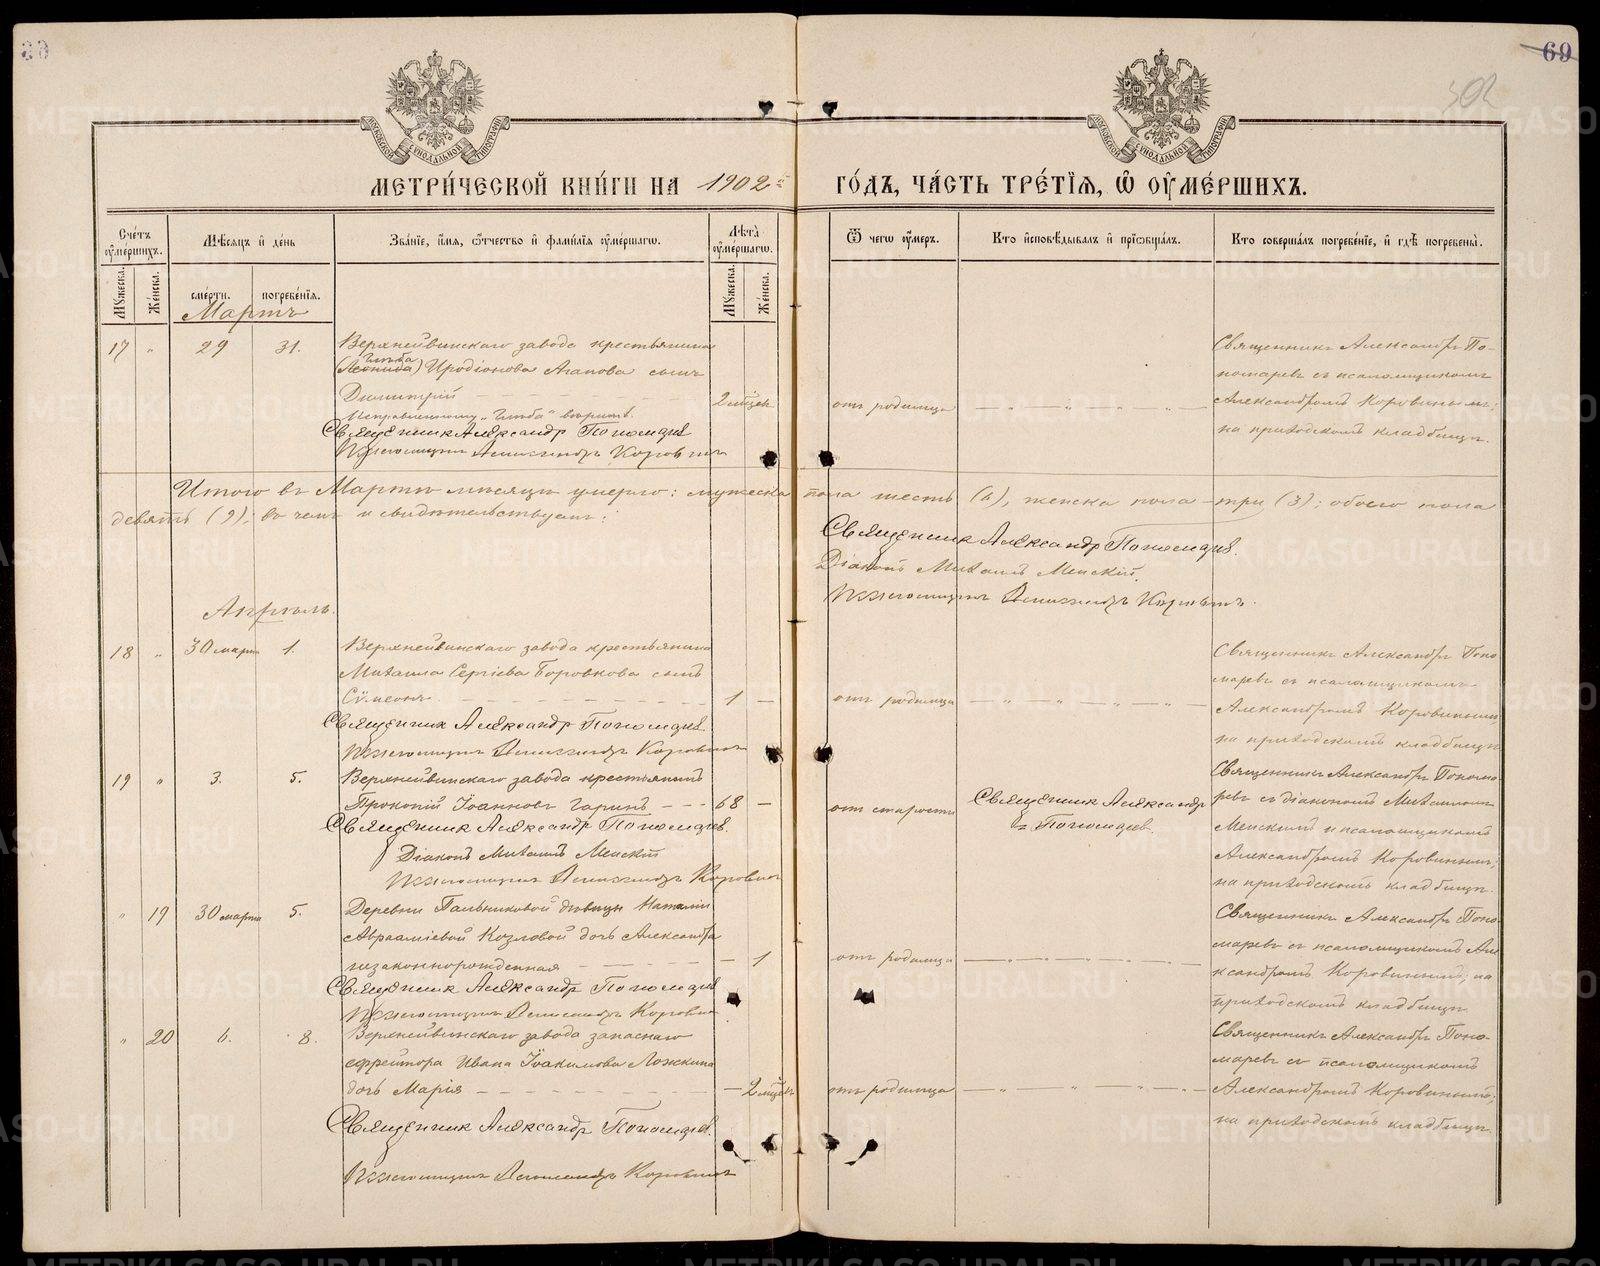 69
502
МЕТРИ́ЧЕСКОЙ КНИ́ГИ НА 1902й ГО́ДЪ, ЧА́СТЬ ТРЕ́ТІѦ, Ѡ҆ ОУ҆МЕ́РШИХЪ.
Сче́тъ оу҆ме́ршихъ.
Мѣ́сяцъ и҆ де́нь
Зва́нїе, и҆́мя, ѻ҆́тчество и҆ фамі́лїя оу҆ме́ршагѡ.
Лѣ́та оу҆ме́ршагѡ.
Ѿ чегѡ̀ оу҆́меръ.
Кто̀ и҆сповѣ́дывалъ и҆ прїѡбща́лъ.
Кто̀ соверша́лъ погребе́нїе, и҆ гдѣ̀ погребены̀.
Му́жеска. Же́нска. сме́рти. погребе́нїя. Му́жеска. Же́нска.
Мартъ
17 " 29 31.
Верхнейвинскаго завода крестьянина
Глѣба
(Леонида) Иродіонова Агапова сынъ
Димитрій 2 мѣсяц.
Исправленному „Глѣба" вѣрить.
Священник Александр Пономарев
Псаломщикъ Александръ Коровинъ
отъ родимца
Священникъ Александръ По-
номаревъ съ псаломщикомъ
Александромъ Коровинымъ;
на приходскомъ кладбищѣ.
Итого въ Мартѣ мѣсяцѣ умерло: мужеска пола шесть (6), женска пола – три (3); обоего пола
девять (9); въ чемъ и свидѣтельствуемъ:
Священник Александр Пономарев.
Діаконъ Михаилъ Менскій.
Псаломщикъ Александръ Коровинъ.
Апрѣль.
18 " 30 марта 1.
Верхнейвинскаго завода крестьянина
Михаила Сергіева Боровкова сынъ
Сѵмеонъ 1 –
Священник Александр Пономарев.
Псаломщикъ Александръ Коровинъ
отъ родимца
Священникъ Александръ Поно-
маревъ съ псаломщикомъ
Александромъ Коровинымъ,
на приходскомъ кладбищѣ
19 " 3. 5.
Верхнейвинскаго завода крестьянинъ
Прокопій Іоанновъ Гаринъ – – - 68 –
Священник Александр Пономарев.
Діаконъ Михаилъ Менскій
Псаломщикъ Александръ Коровинъ
отъ старости
Священник Александр
Пономарев.
Священникъ Александръ Пономо-
ревъ съ діакономъ Михаиломъ
Менскимъ и псаломщикомъ
Александромъ Коровинымъ;
на приходскомъ кладбищѣ.
" 19 30 марта 5.
Деревни Пальниковой дѣвицы Наталіи
Авраамиевой Козловой дочь Александра
незаконнорожденная – 1
Священник Александр Пономарев
Псаломщикъ Александръ Коровинъ
отъ родимца
Священникъ Александръ Поно-
маревъ съ псаломщикомъ Але
ксандромъ Коровинымъ; на
приходскомъ кладбищѣ
" 20 6. 8.
Верхнейвинскаго завода запаснаго
ефрейтора Ивана Іоакимова Ложкина
дочь Марія – 2 мѣсяц
Священник Александр Пономарев.
Псаломщикъ Александръ Коровинъ
отъ родимца
Священникъ Александръ Поно-
маревъ съ псаломщикомъ
Александромъ Коровинымъ;
на приходскомъ кладбищѣ.
METRIKI.GASO-URAL.RU